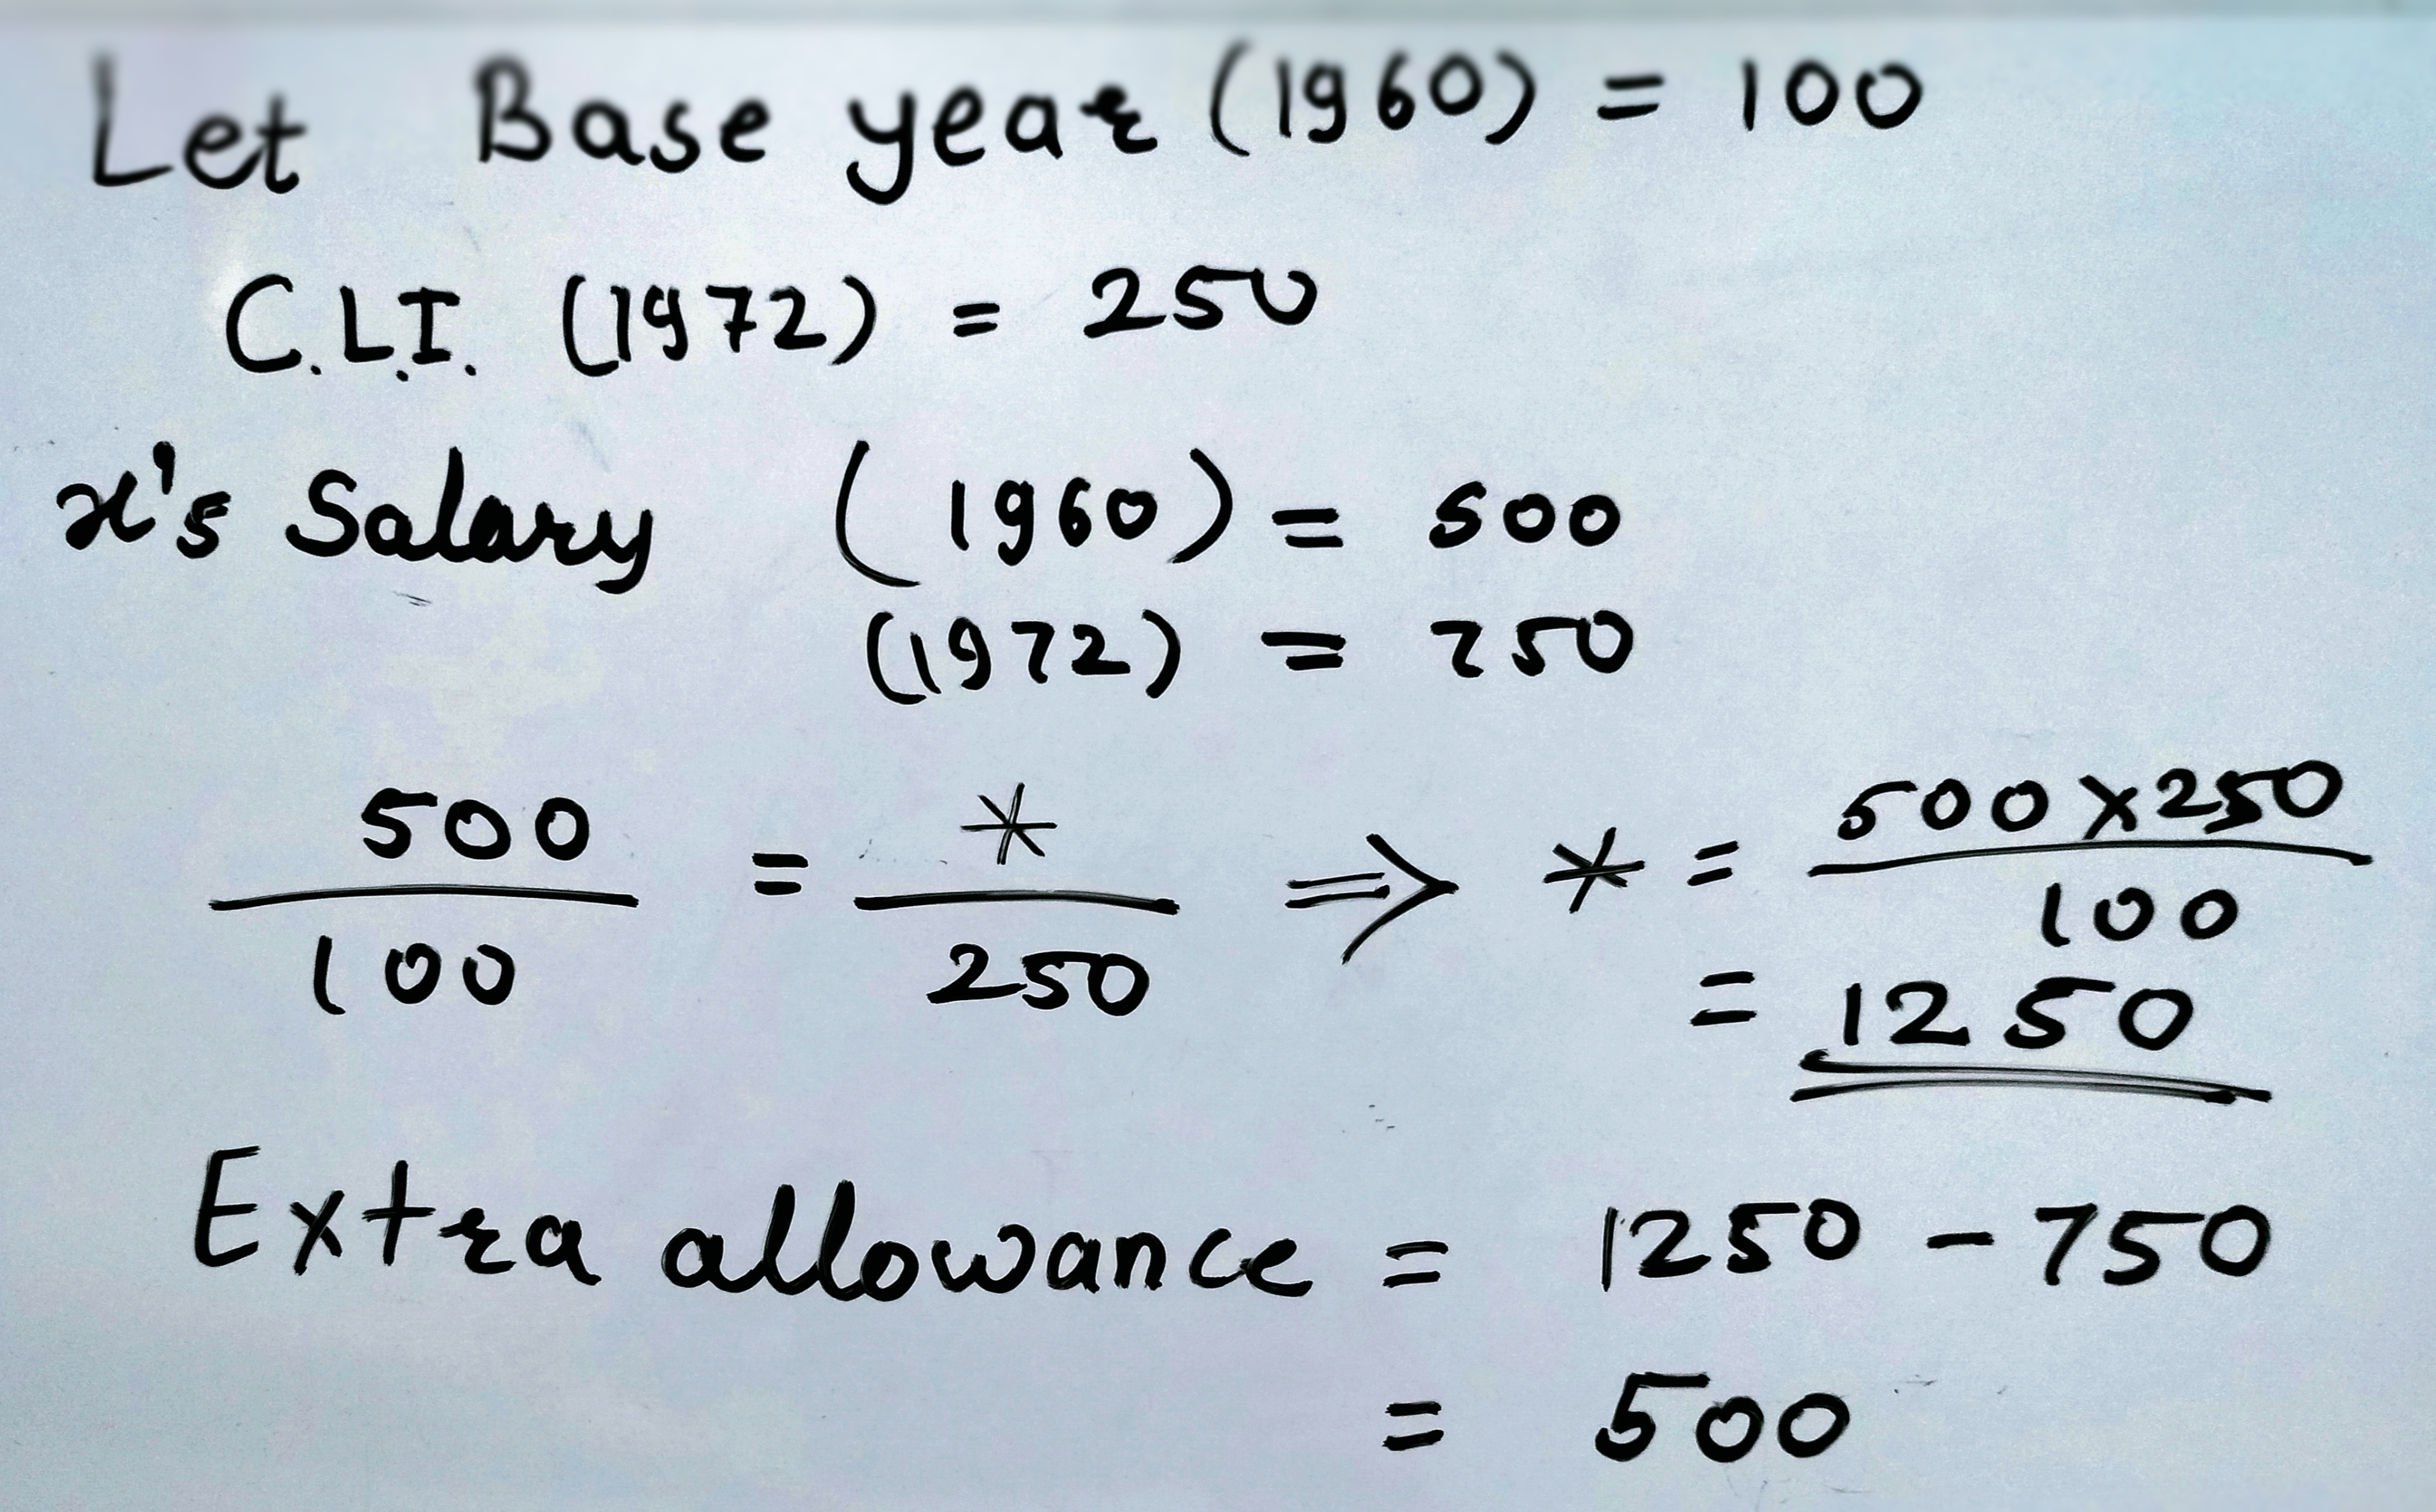 Let Base year (1960) = 100
C.L.I. (1972) = 250
x's Salary (1960) = 500
(1972) = 750
500/100 = */250 ⇒ * = 500×250/100
= 1250
Extra allowance = 1250 - 750
= 500